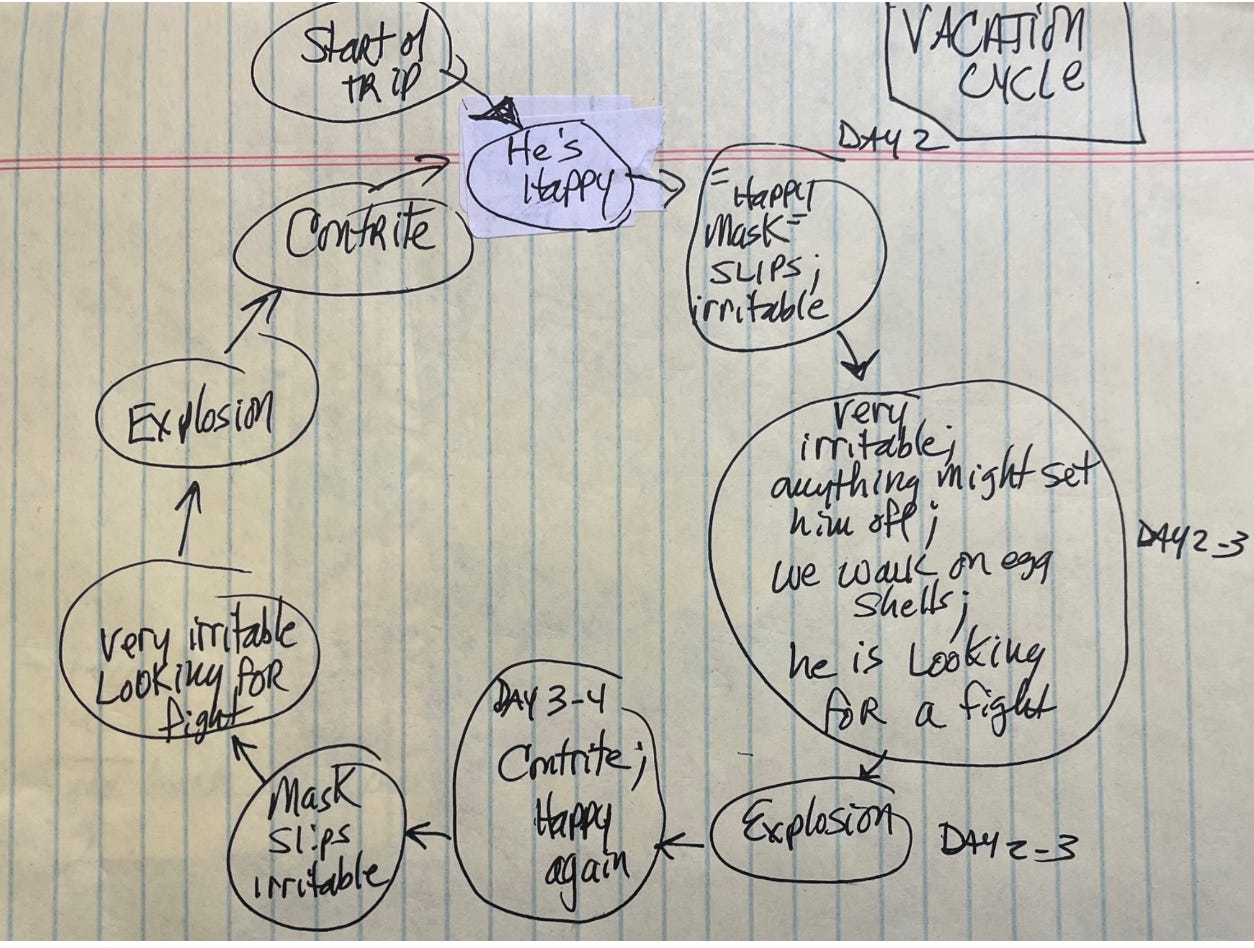 Start of
TRIP
VACATION
CYCLE
He's
Happy
DAY 2
=Happy
Mask=
SLIPS;
irritable
very
irritable;
anything might set
him off;
we walk on egg
shells;
he is Looking
foR a fight
DAY 2-3
Explosion
DAY 2-3
DAY 3-4
Contrite;
Happy
again
Mask
Slips
irritable
Very irritable
Looking foR
fight
Explosion
Contrite